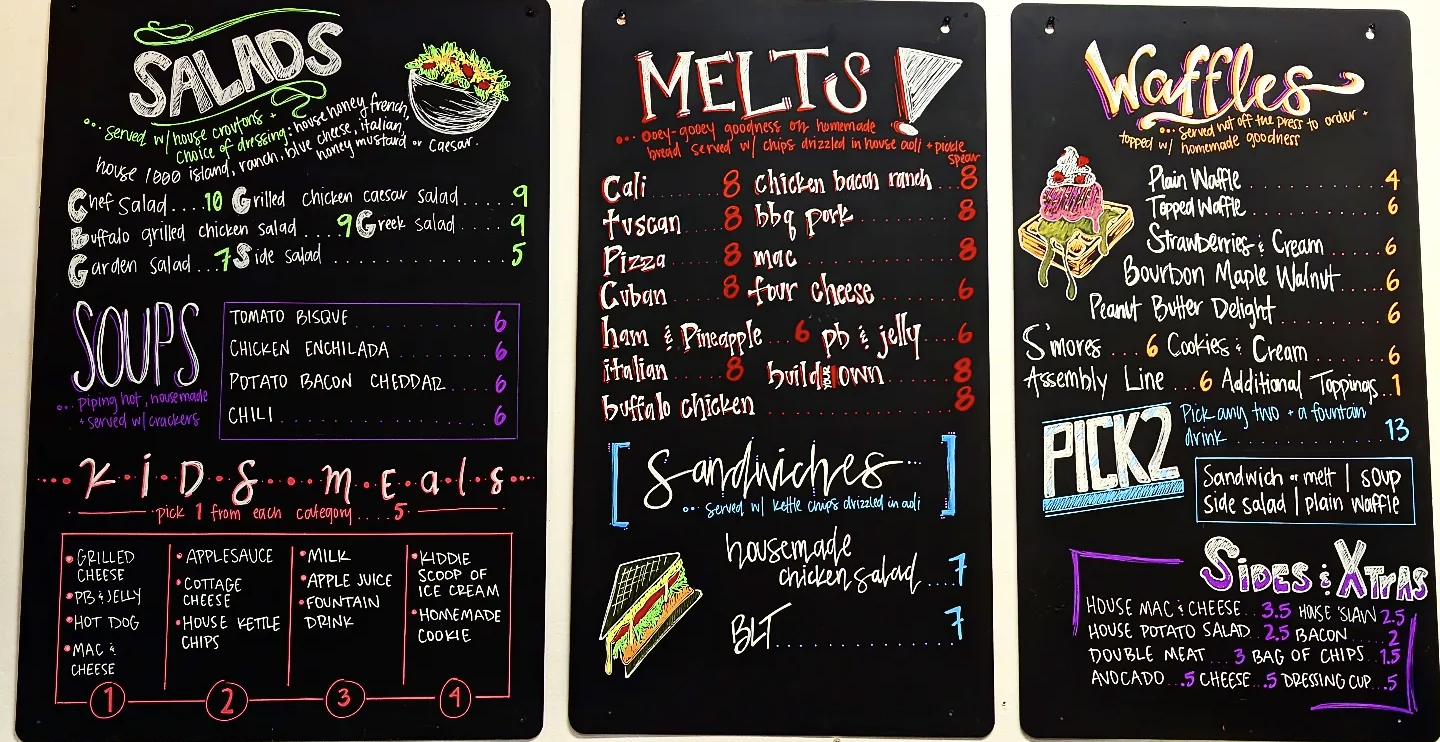 SALADS
served w/ house croutons +
choice of dressing: house honey french,
house 1000 island, ranch, blue cheese, italian,
honey mustard or caesar.
Chef Salad....10 Grilled chicken caesar salad.....9
Buffalo grilled chicken salad....9 Greek salad.....9
Garden salad...7 Side salad...................5
SOUPS
piping hot, housemade
+ served w/ crackers
TOMATO BISQUE..........6
CHICKEN ENCHILADA.......6
POTATO BACON CHEDDAR...6
CHILI................6
KiDS MEals
pick 1 from each category....5
GRILLED
CHEESE
PB & JELLY
HOT DOG
MAC &
CHEESE
1
APPLESAUCE
COTTAGE
CHEESE
HOUSE KETTLE
CHIPS
2
MILK
APPLE JUICE
FOUNTAIN
DRINK
3
KIDDIE
SCOOP OF
ICE CREAM
HOMEMADE
COOKIE
4
MELTS
ooey-gooey goodness on homemade
bread served w/ chips drizzled in house aoli + pickle
spear
Cali........8 Chicken bacon ranch...8
tuscan....8 bbq pork..........8
Pizza.....8 mac..............8
Cuban....8 four cheese........6
ham & Pineapple...6 pb & jelly...6
italian......8 build your own.......8
buffalo chicken..................8
Sandwiches
served w/ kettle chips drizzled in aoli
housemade
chicken salad...7
BLT...............7
Waffles
served hot off the press to order +
topped w/ homemade goodness
Plain Waffle............4
Topped Waffle...........6
Strawberries & Cream.....6
Bourbon Maple Walnut....6
Peanut Butter Delight........6
S'mores....6 Cookies & Cream.....6
Assembly Line...6 Additional Toppings..1
PICK 2
Pick any two + a fountain
drink................13
Sandwich or melt | soup
side salad | plain waffle
SIDES & XTRAS
HOUSE MAC & CHEESE...3.5 HOUSE SLAW 2.5
HOUSE POTATO SALAD..2.5 BACON.....2
DOUBLE MEAT...3 BAG OF CHIPS..1.5
AVOCADO...5 CHEESE..5 DRESSING CUP..5